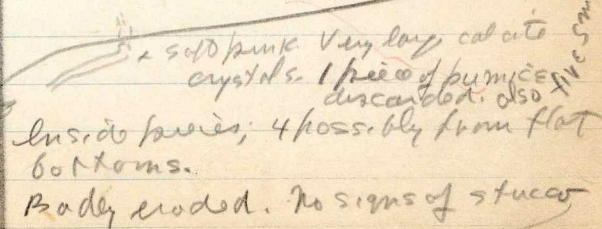 & soft pink. Very large calcite
crystals. 1 piece of pumice
discarded. also five sm
Inside pieces; 4 possibly from flat
bottoms.
Badly eroded. No signs of stucco